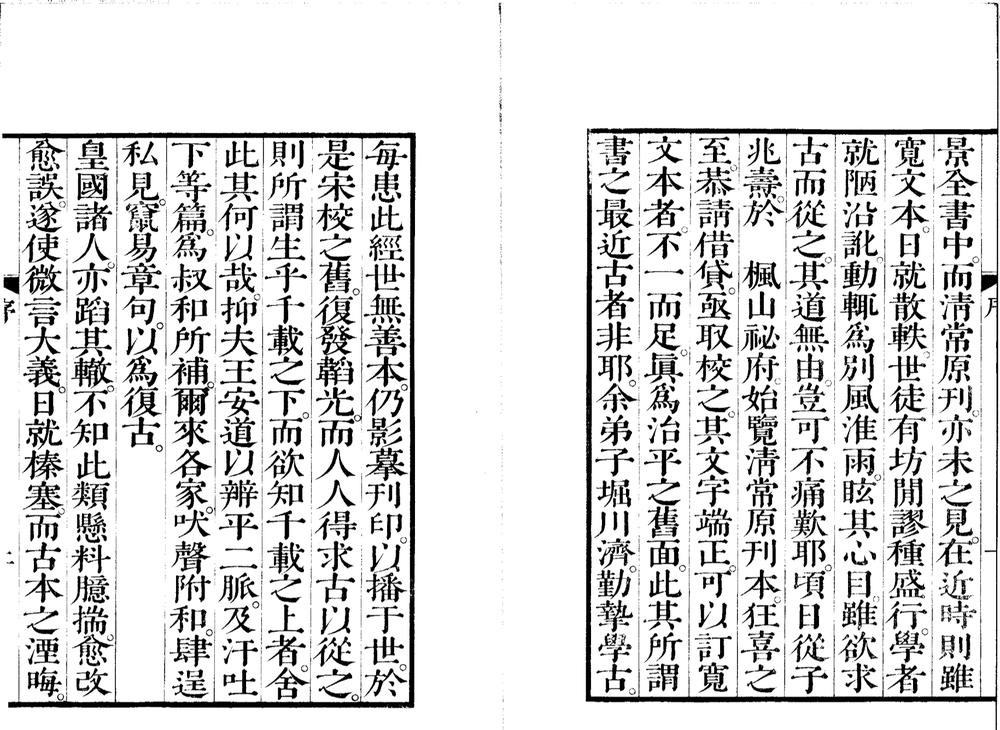 景全書中。而淸常原刊。亦未之見。在近時則雖
寬文本。日就散軼。世徒有坊閒謬種盛行。學者
就陋沿訛。動輒爲別風淮雨。眩其心目。雖欲求
古而從之。其道無由。豈可不痛歎耶。頃日從子
兆壽。於　楓山祕府。始覽淸常原刊本。狂喜之
至。恭請借貸。亟取校之。其文字端正。可以訂寬
文本者。不一而足。眞爲治平之舊面。此其所謂
書之最近古者非耶。余弟子堀川濟。勤摯學古。
每患此經世無善本。仍影摹刊印。以播于世。於
是宋校之舊。復發韜光。而人人得求古以從之。
則所謂生乎千載之下。而欲知千載之上者。舍
此其何以哉。抑夫王安道以辨平二脈。及汗吐
下等篇。爲叔和所補。爾來各家。吠聲附和。肆逞
私見。竄易章句。以爲復古。
皇國諸人。亦蹈其轍。不知此類懸料臆揣。愈改
愈誤。遂使微言大義。日就榛塞。而古本之湮晦。
序